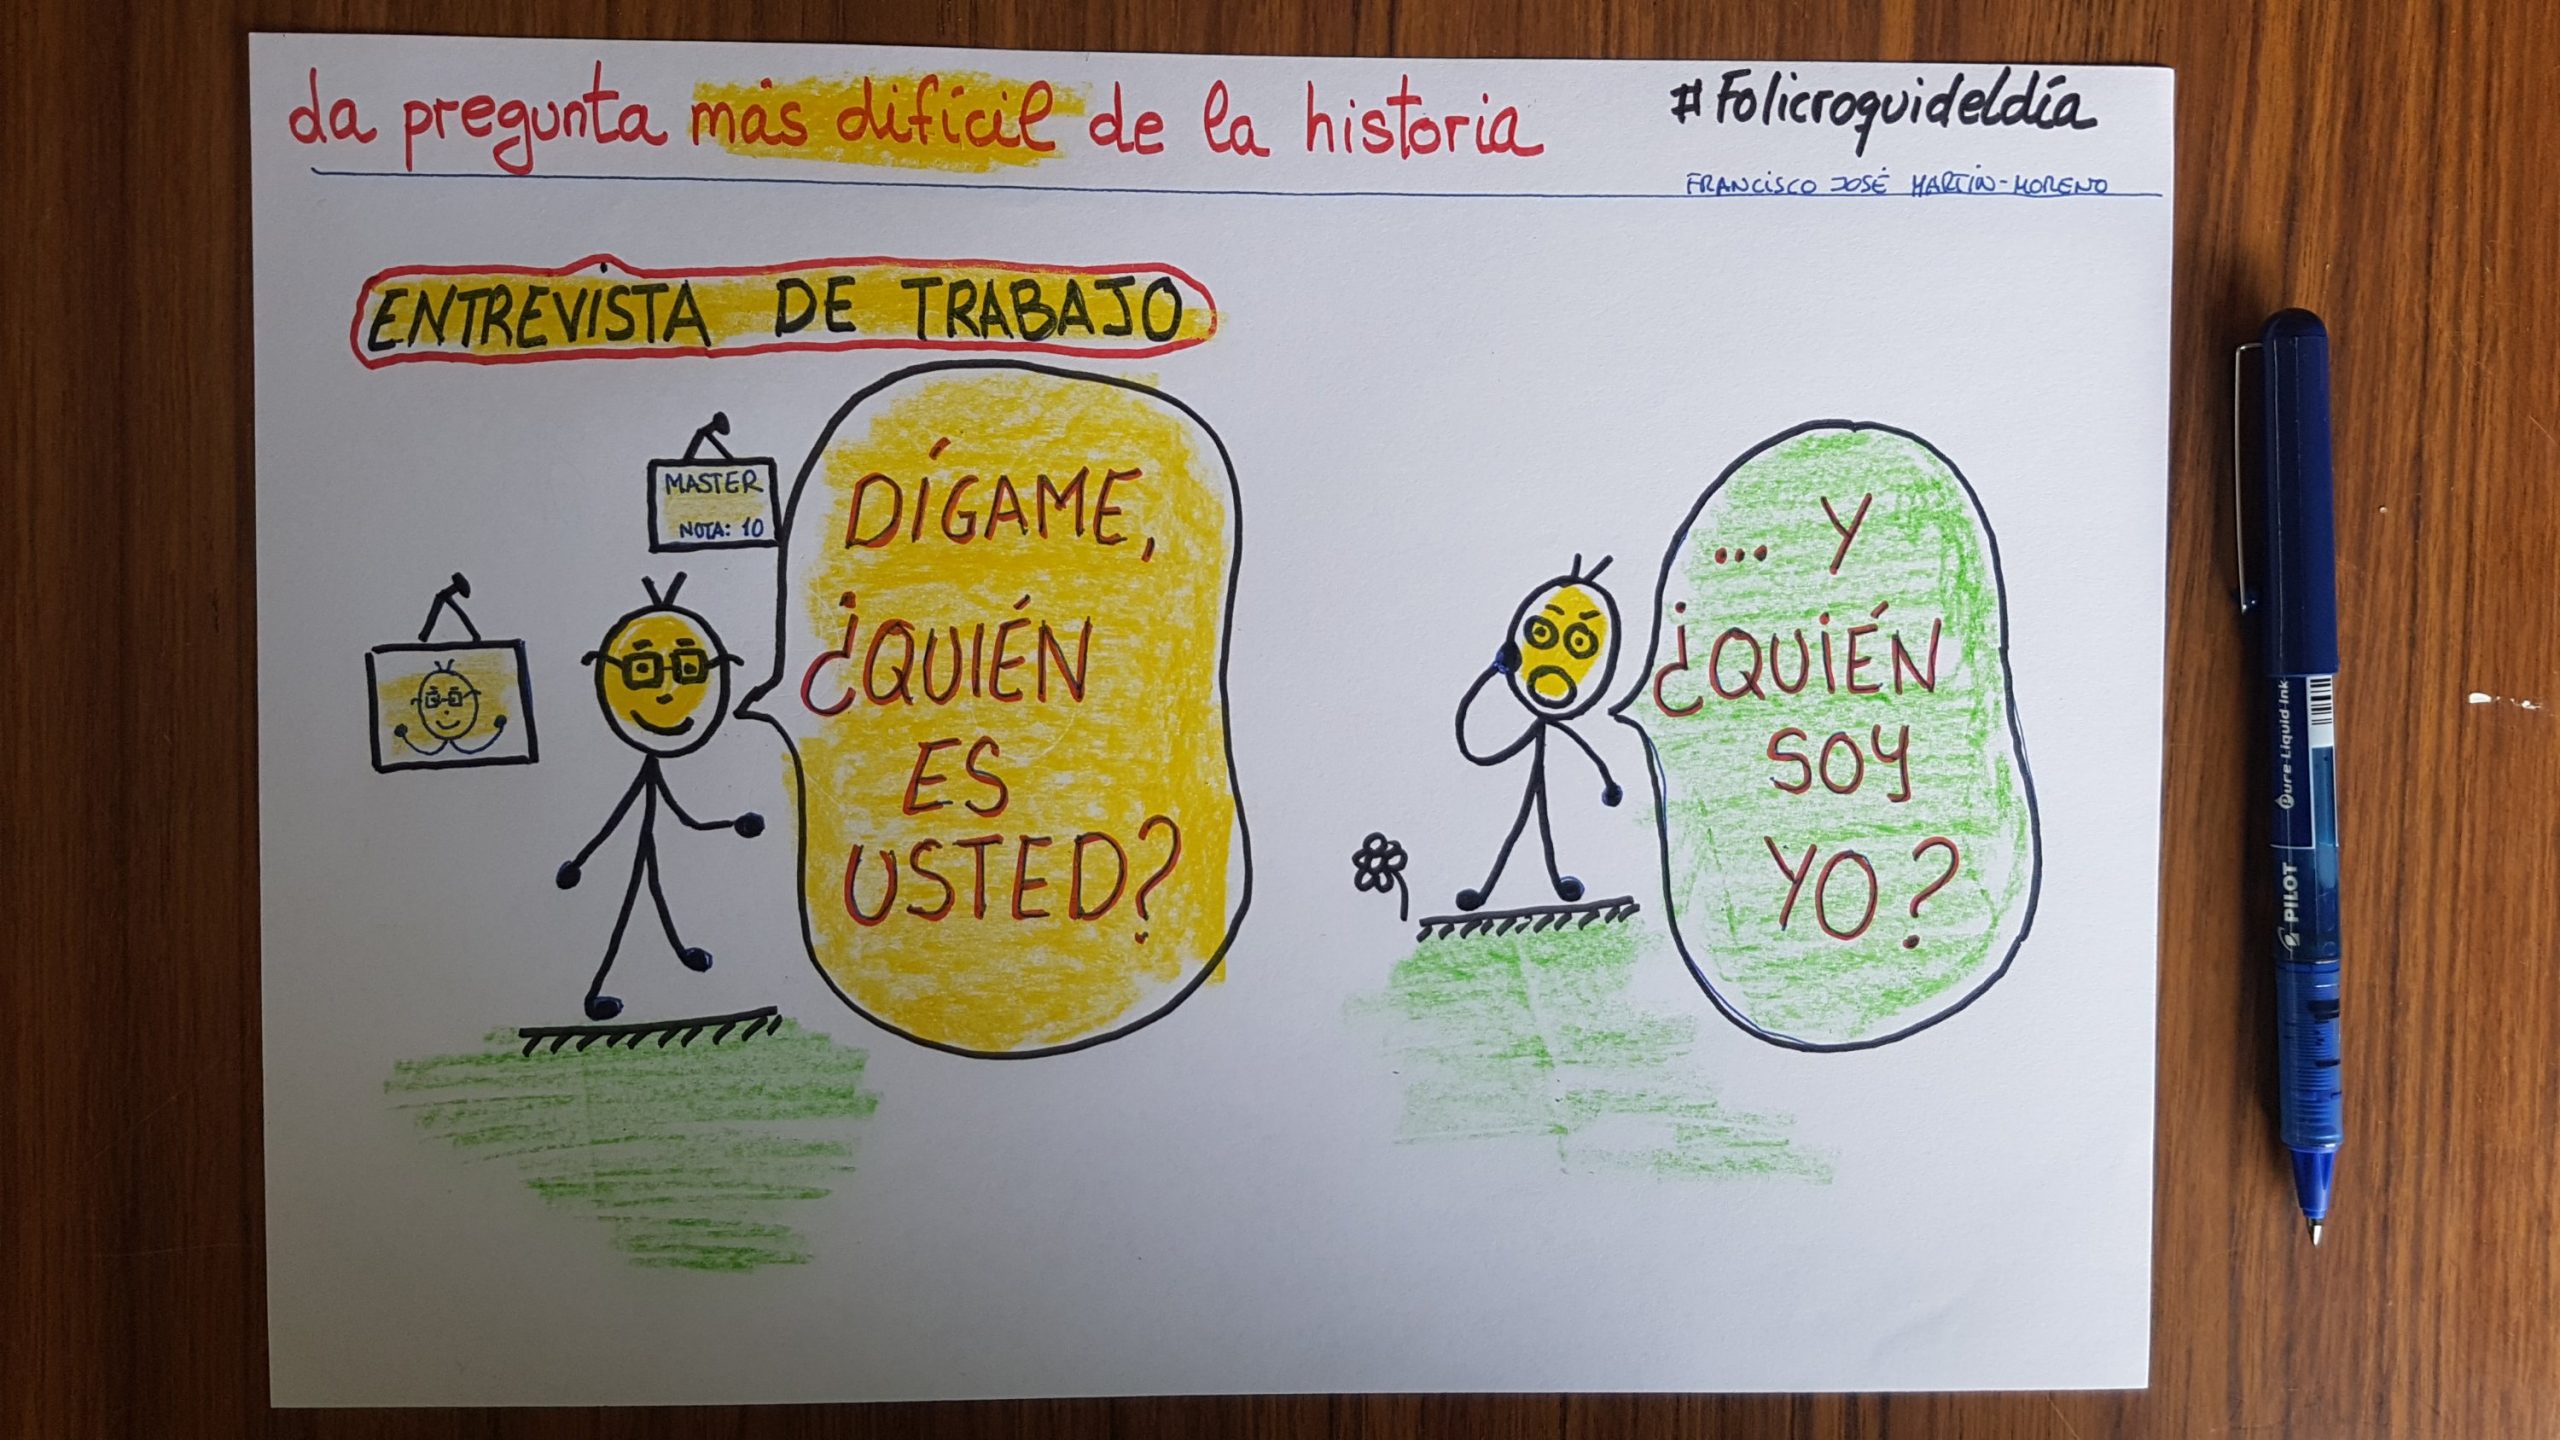 La pregunta más difícil de la historia
#Folicroquideldía
FRANCISCO JOSÉ MARTÍN-MORENO
ENTREVISTA DE TRABAJO
MASTER
NOTA: 10
DÍGAME,
¿QUIÉN
ES
USTED?
... Y
¿QUIÉN
SOY
YO?
PILOT
Pure Liquid Ink